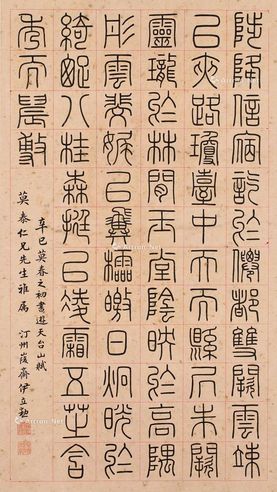 陟降信宿訖於僊都雙闕雲竦
以夾路瓊臺中天而縣凥朱闕
靈瓏於林間玉堂陰映於高隅
彤雲斐娓以翼櫺皦日炯晄於
綺疏八桂森挺以凌霜五芝含
秀而晨敷
辛巳莫春之初書遊天台山賦
莫泰仁兄先生雅属 汀州峻齋伊立勲